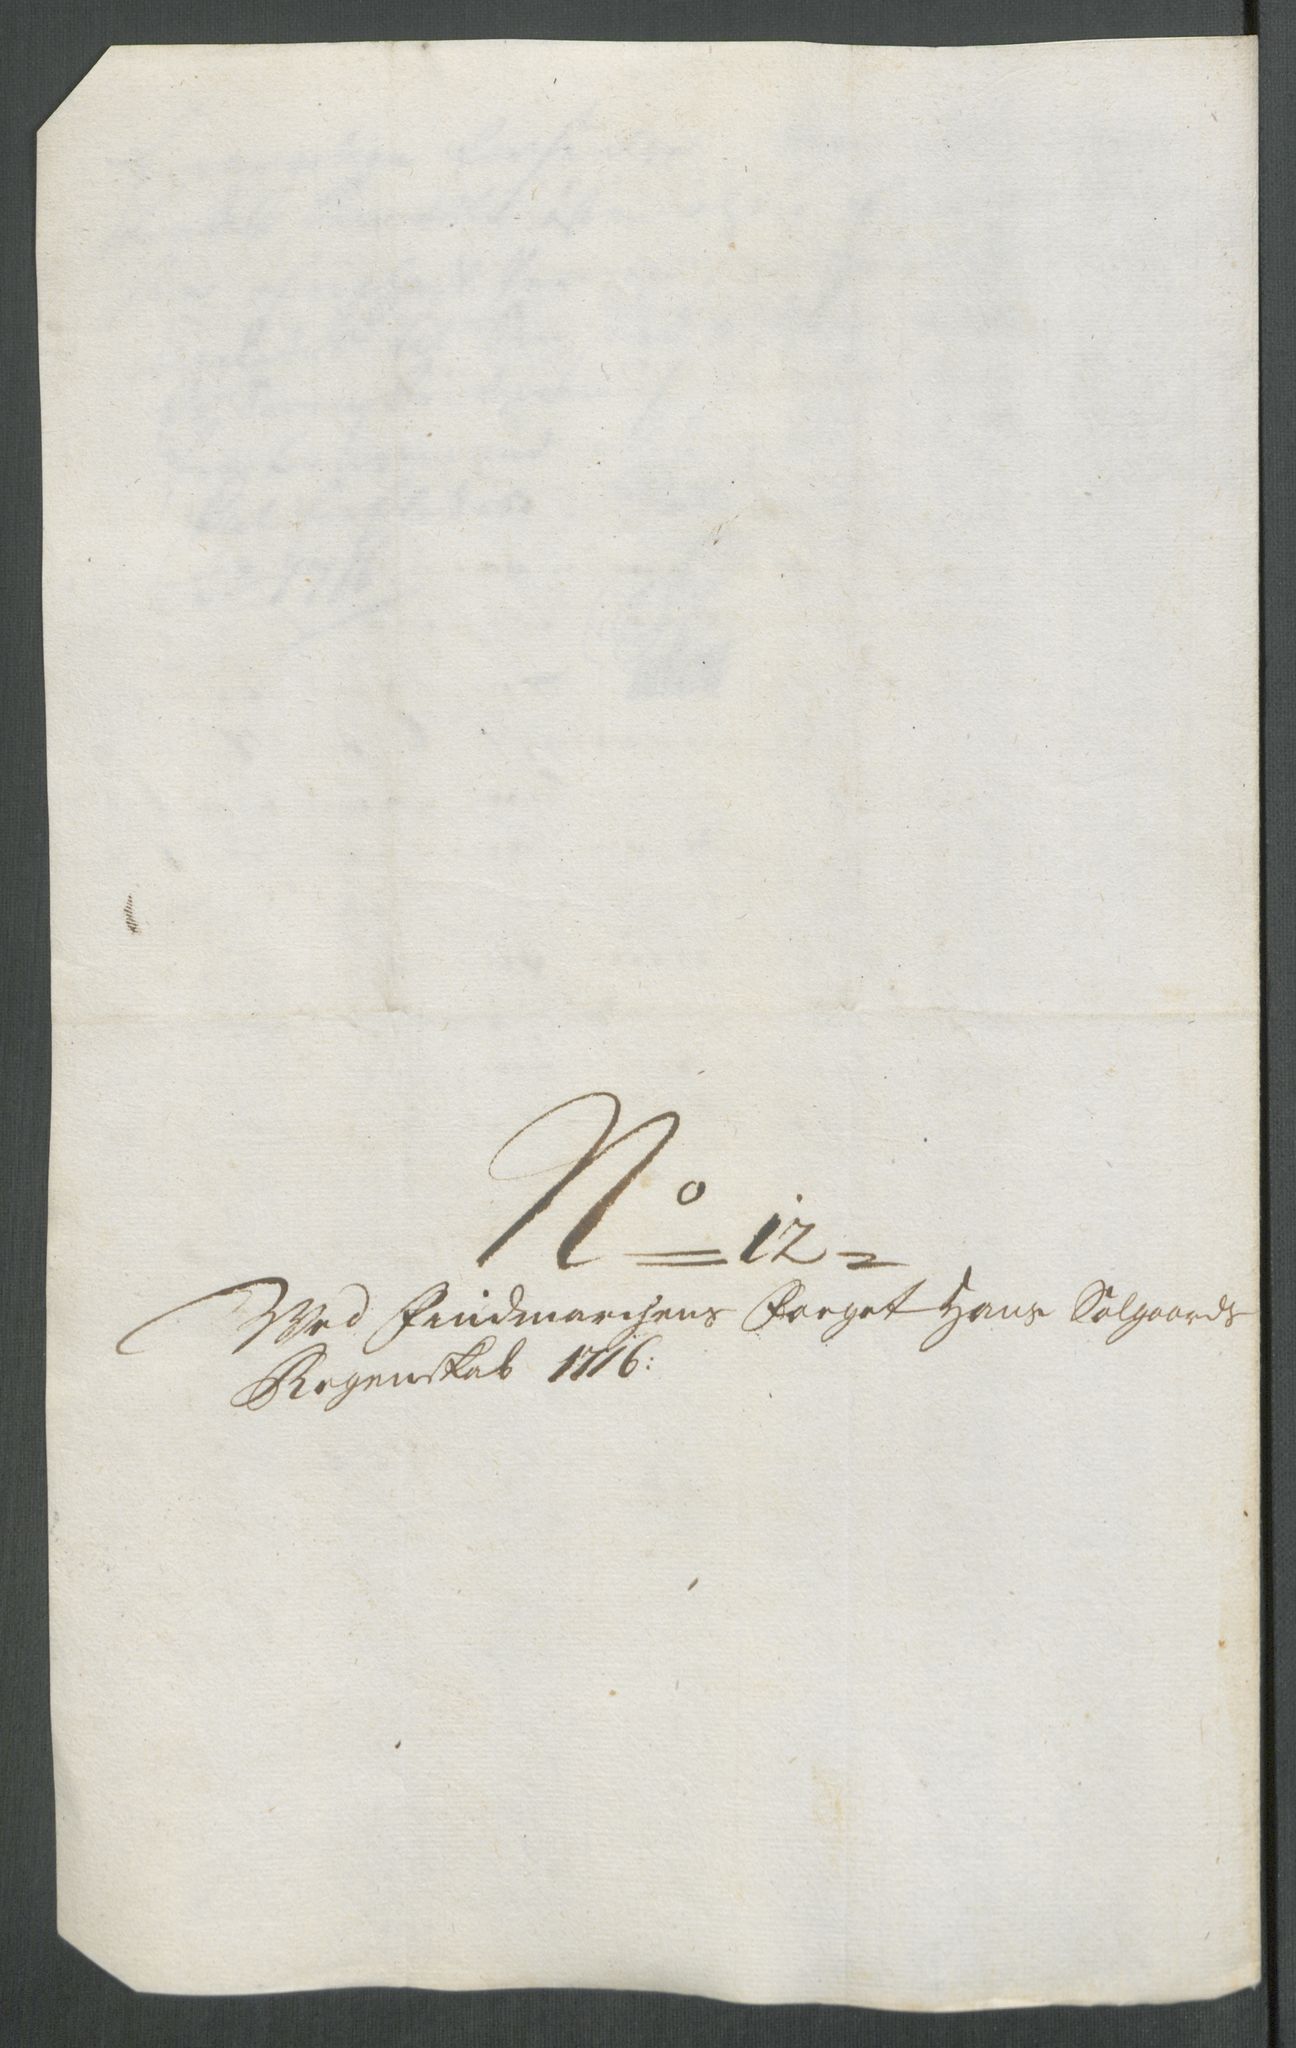 No 12
Ved Findmarchens Forget Hans Solgaards
Regenskab 1716: